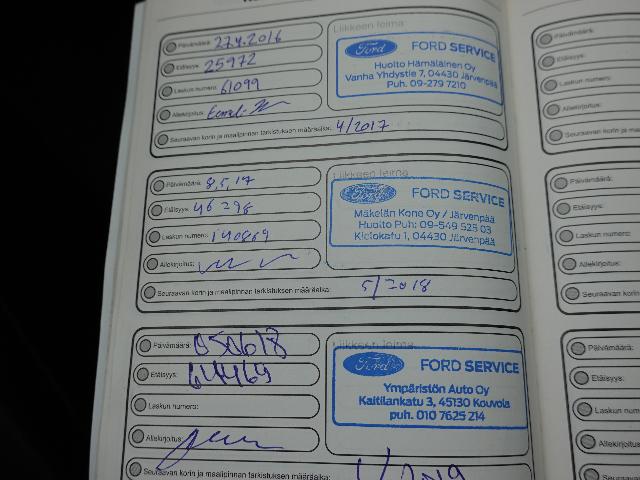 Päivämäärä: 27.4.2016
Etäisyys: 25972
Laskun numero: 61099
Allekirjoitus:
Seuraavan korin ja maalipinnan tarkistuksen määräaika: 4/2017
Liikkeen leima
Ford FORD SERVICE
Huolto Hämäläinen Oy
Vanha Yhdystie 7, 04430 Järvenpää
Puh. 09-279 7210
Päivämäärä: 8.5.17
Etäisyys: 46298
Laskun numero: 140869
Allekirjoitus:
Seuraavan korin ja maalipinnan tarkistuksen määräaika: 5/2018
Liikkeen leima
Ford FORD SERVICE
Mäkelän Kone Oy / Järvenpää
Huolto Puh: 09-549 525 03
Kielokatu 1, 04430 Järvenpää
Päivämäärä: 050618
Etäisyys: 644469
Laskun numero:
Allekirjoitus:
Seuraavan korin ja maalipinnan tarkistuksen määräaika:
Liikkeen leima
Ford FORD SERVICE
Ympäristön Auto Oy
Kaitilankatu 3, 45130 Kouvola
puh. 010 7625 214
Päivämäärä:
Etäisyys:
Laskun numero:
Allekirjoitus:
Seuraavan kori
Päivämäärä:
Etäisyys:
Laskun nume
Allekirjoitus:
Seuraavan
Päivämäärä:
Etäisyys:
Laskun
Allekirjoitus
Seuraavan